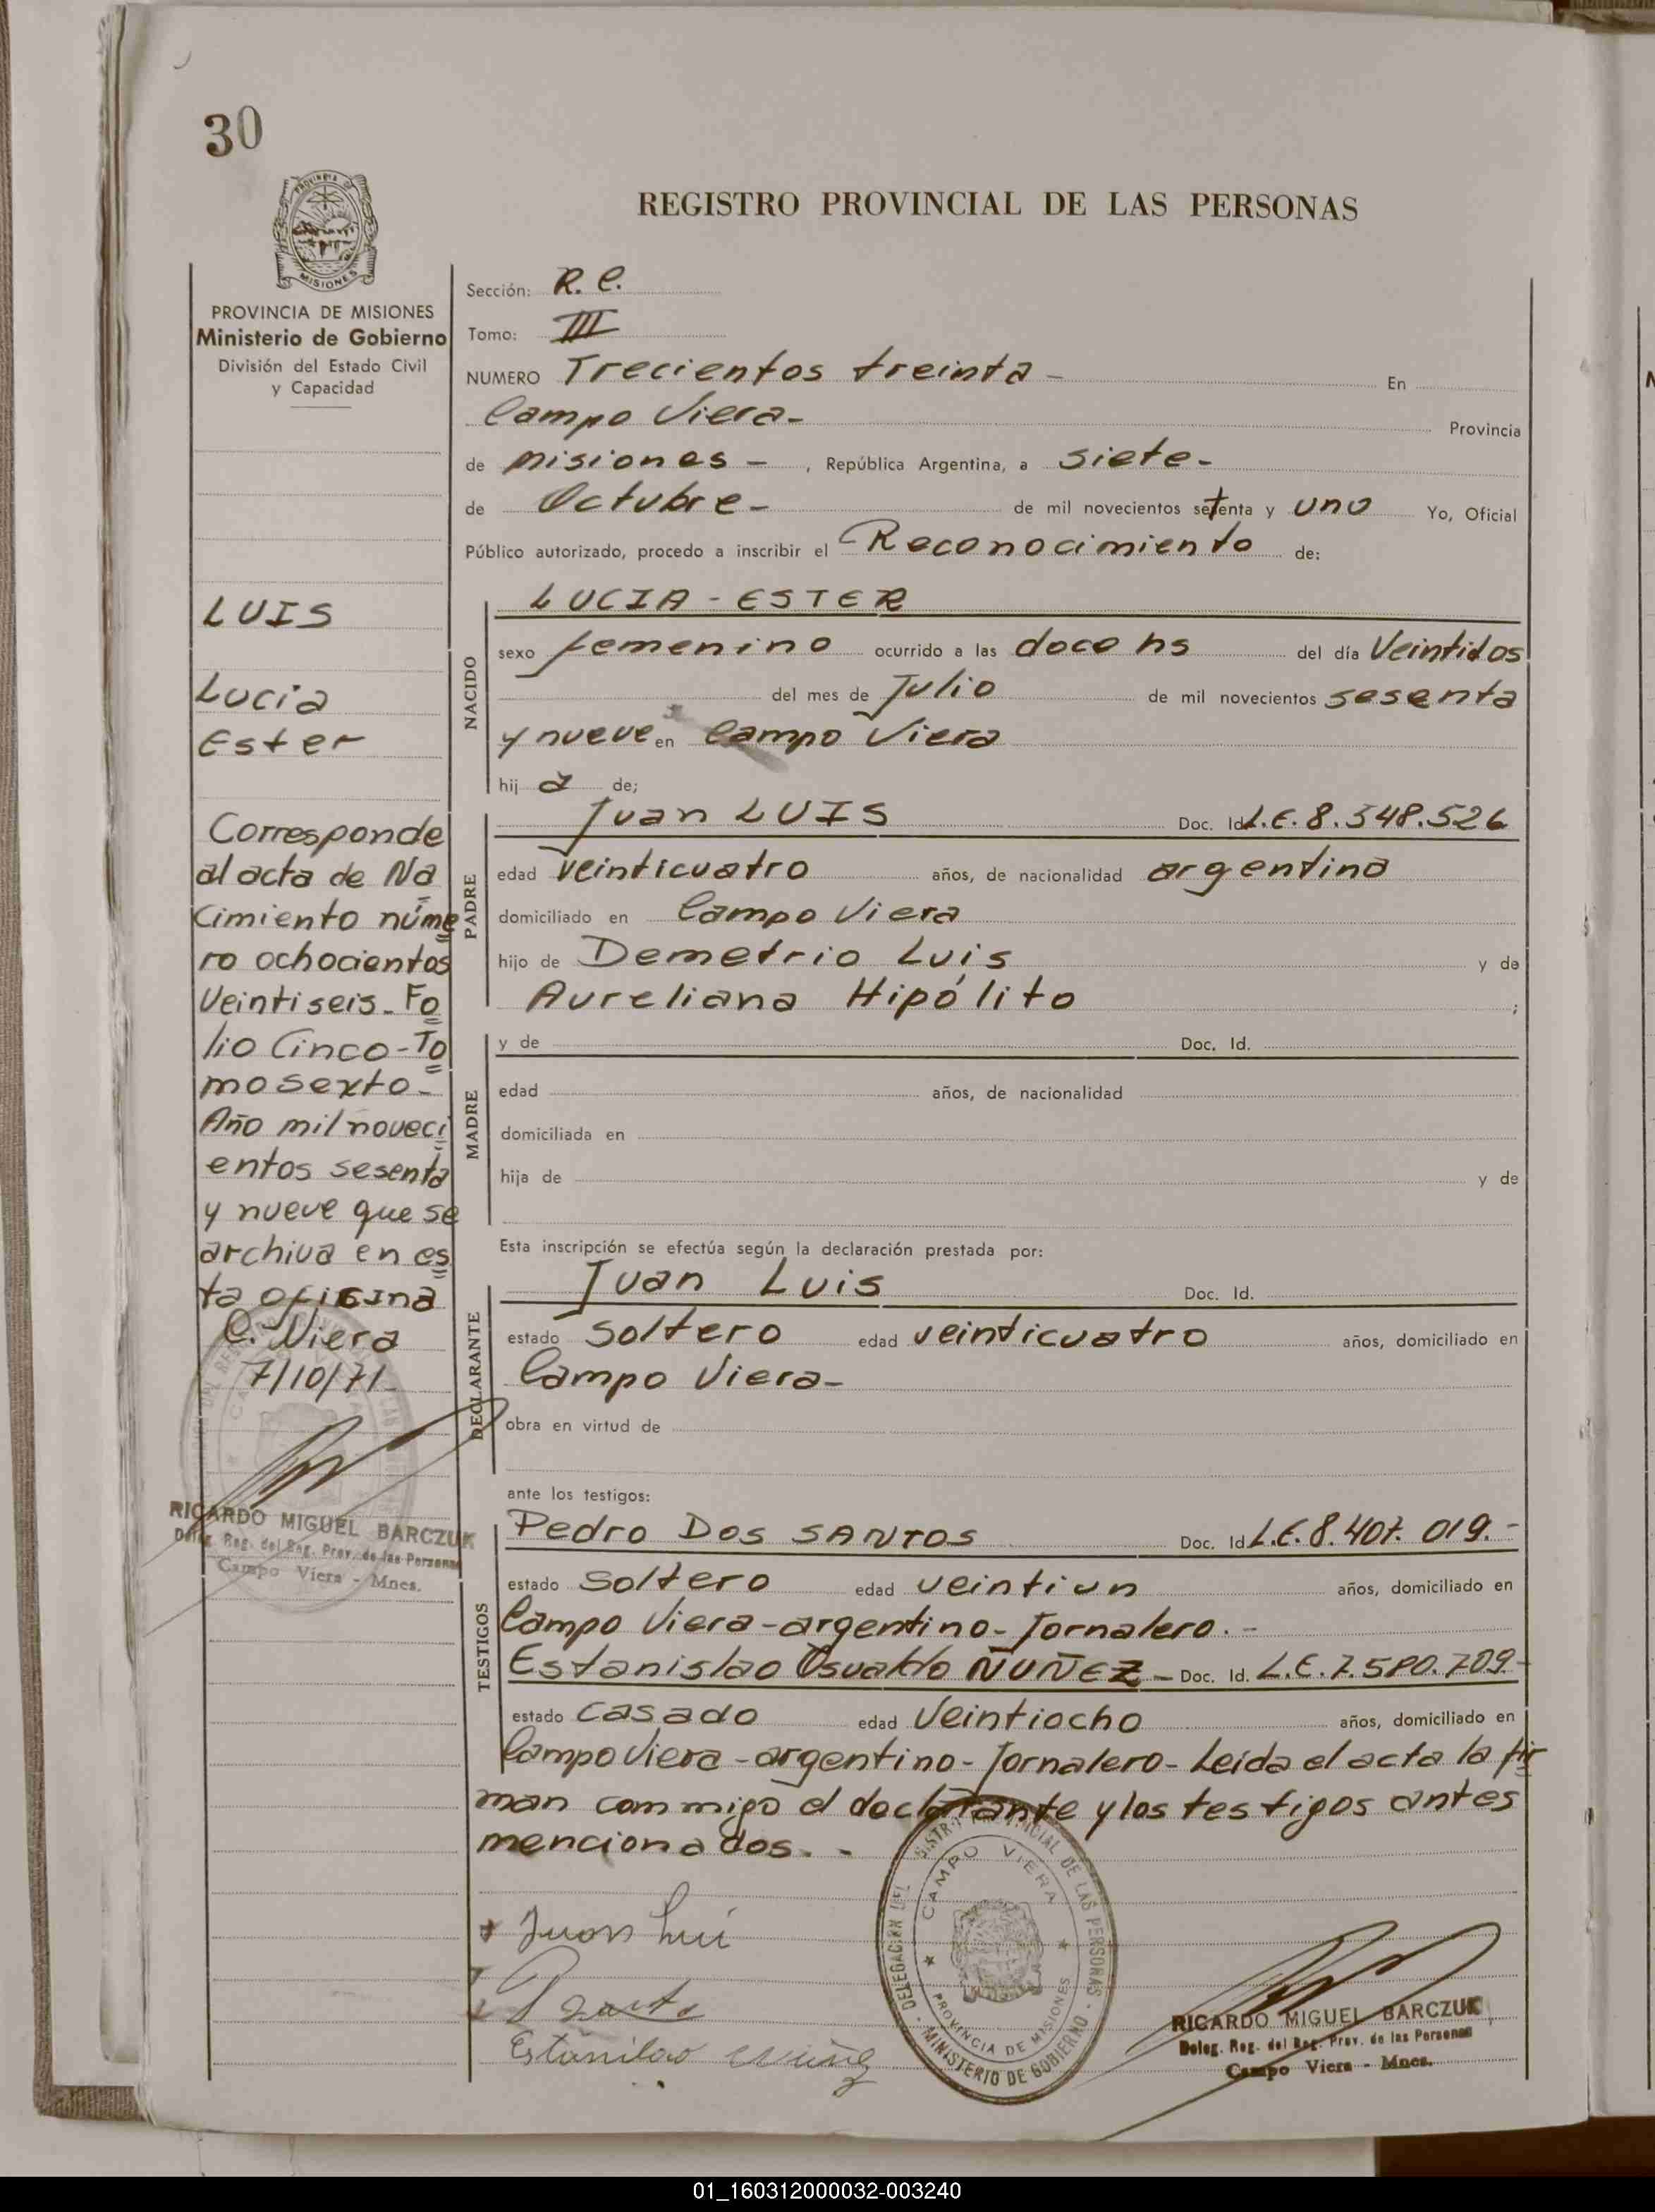 30
REGISTRO PROVINCIAL DE LAS PERSONAS
PROVINCIA DE MISIONES
Ministerio de Gobierno
División del Estado Civil
y Capacidad
LUIS
Lucia
Ester
Corresponde
al acta de Na
cimiento núme
ro ochocientos
Veintiseis- Fo
lio Cinco-To
mo sexto-
Año mil noveci
entos sesenta
y nueve que se
archiva en es
ta oficina
C. Viera
7/10/71-
RICARDO MIGUEL BARCZUK
Deleg. Reg. del Reg. Prov. de las Personas
Campo Viera - Mnes.
Sección: R. C.
Tomo: III
NUMERO Trecientos treinta - En
Campo Viera- Provincia
de Misiones - , República Argentina, a siete-
de Octubre- de mil novecientos setenta y uno Yo, Oficial
Público autorizado, procedo a inscribir el Reconocimiento de:
NACIDO
LUCIA - ESTER
sexo femenino ocurrido a las doce hs del día Veintidos
del mes de Julio de mil novecientos sesenta
y nueve en Campo Viera
hij a de;
PADRE
Juan LUIS Doc. Id L.E. 8.348.526
edad veinticuatro años, de nacionalidad argentina
domiciliado en Campo Viera
hijo de Demetrio Luis y de
Aureliana Hipólito ;
MADRE
y de Doc. Id.
edad años, de nacionalidad
domiciliada en
hija de y de
Esta inscripción se efectúa según la declaración prestada por:
DECLARANTE
Juan Luis Doc. Id.
estado soltero edad veinticuatro años, domiciliado en
Campo Viera-
obra en virtud de
ante los testigos:
TESTIGOS
Pedro Dos SANTOS Doc. Id L.E. 8.407.019.-
estado soltero edad veintiun años, domiciliado en
Campo Viera-argentino-Jornalero.-
Estanislao Osvaldo NUÑEZ- Doc. Id. L.E. 7.580.709-
estado casado edad Veintiocho años, domiciliado en
Campo Viera-argentino-Jornalero-Leida el acta la fir
man conmigo el declarante y los testigos antes
mencionados.-
Juan Lui
Estanilao
DELEGACION DEL REGISTRO PROVINCIAL DE LAS PERSONAS
CAMPO VIERA
PROVINCIA DE MISIONES
MINISTERIO DE GOBIERNO
RICARDO MIGUEL BARCZUK
Deleg. Reg. del Reg. Prov. de las Personas
Campo Viera - Mnes.
01_160312000032-003240